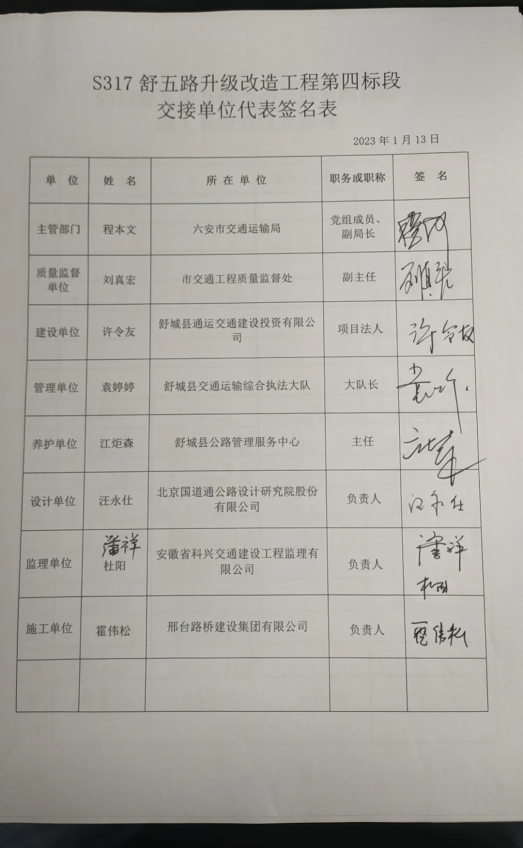 S317 舒五路升级改造工程第四标段
交接单位代表签名表
2023 年 1 月 13 日
单 位 姓 名 所 在 单 位 职务或职称 签 名
主管部门 程本文 六安市交通运输局 党组成员、
副局长
质量监督
单位 刘真宏 市交通工程质量监督处 副主任
建设单位 许令友 舒城县通运交通建设投资有限公
司 项目法人 许令友
管理单位 袁婷婷 舒城县交通运输综合执法大队 大队长
养护单位 江炬森 舒城县公路管理服务中心 主任
设计单位 汪永仕 北京国道通公路设计研究院股份
有限公司 负责人 汪永仕
监理单位 潘祥
杜阳 安徽省科兴交通建设工程监理有
限公司 负责人 潘祥
施工单位 霍伟松 邢台路桥建设集团有限公司 负责人 霍伟松